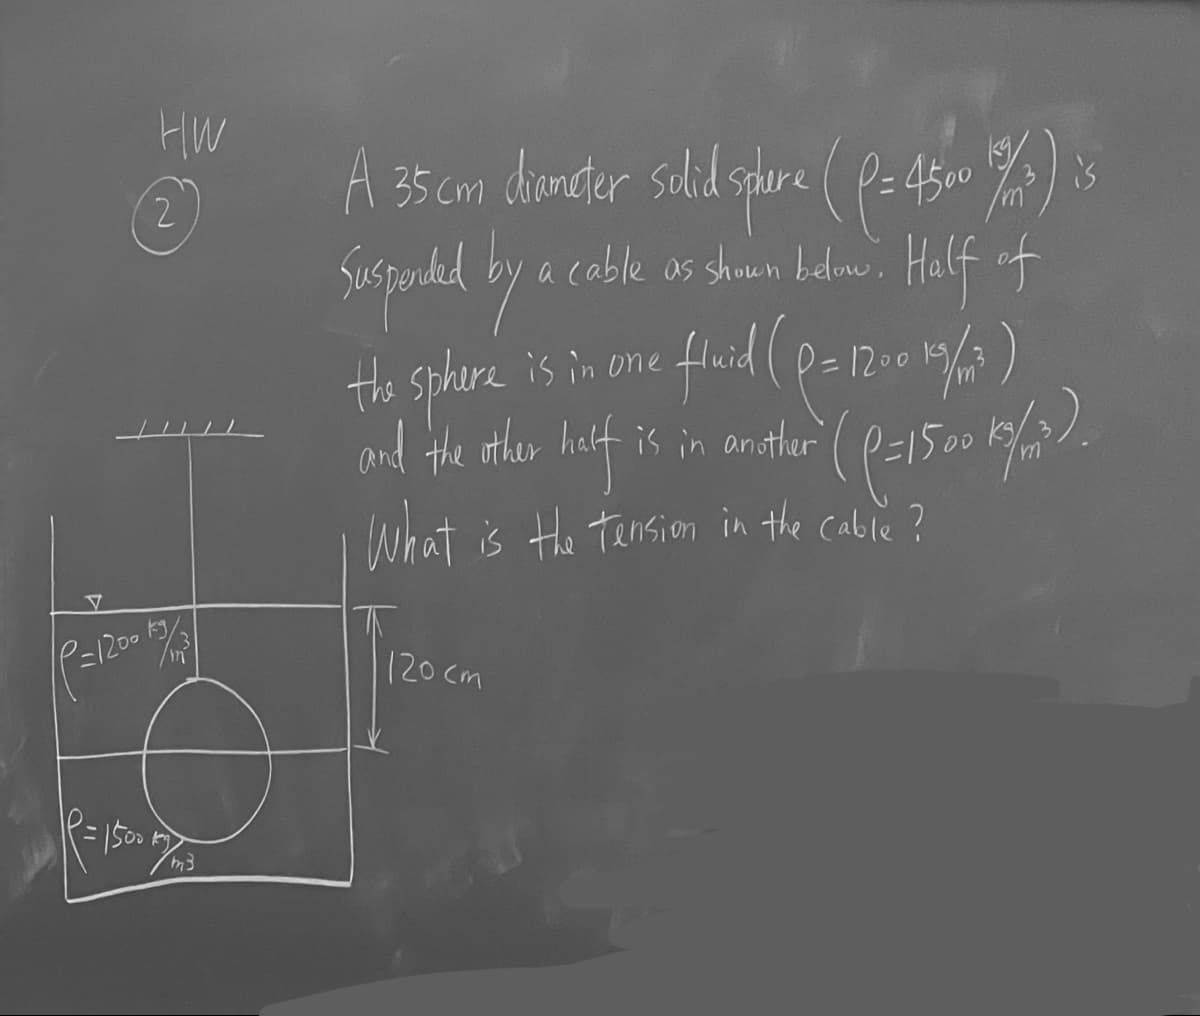 HW
2
A 35 cm diameter solid sphere ( ρ= 4500 kg/m³ ) is
Suspended by a cable as shown below. Half of
the sphere is in one fluid ( ρ= 1200 kg/m³ )
and the other half is in another ( ρ=1500 kg/m³ ).
What is the Tension in the cable ?
ρ=1200 kg/m³
120 cm
ρ=1500 kg/m3